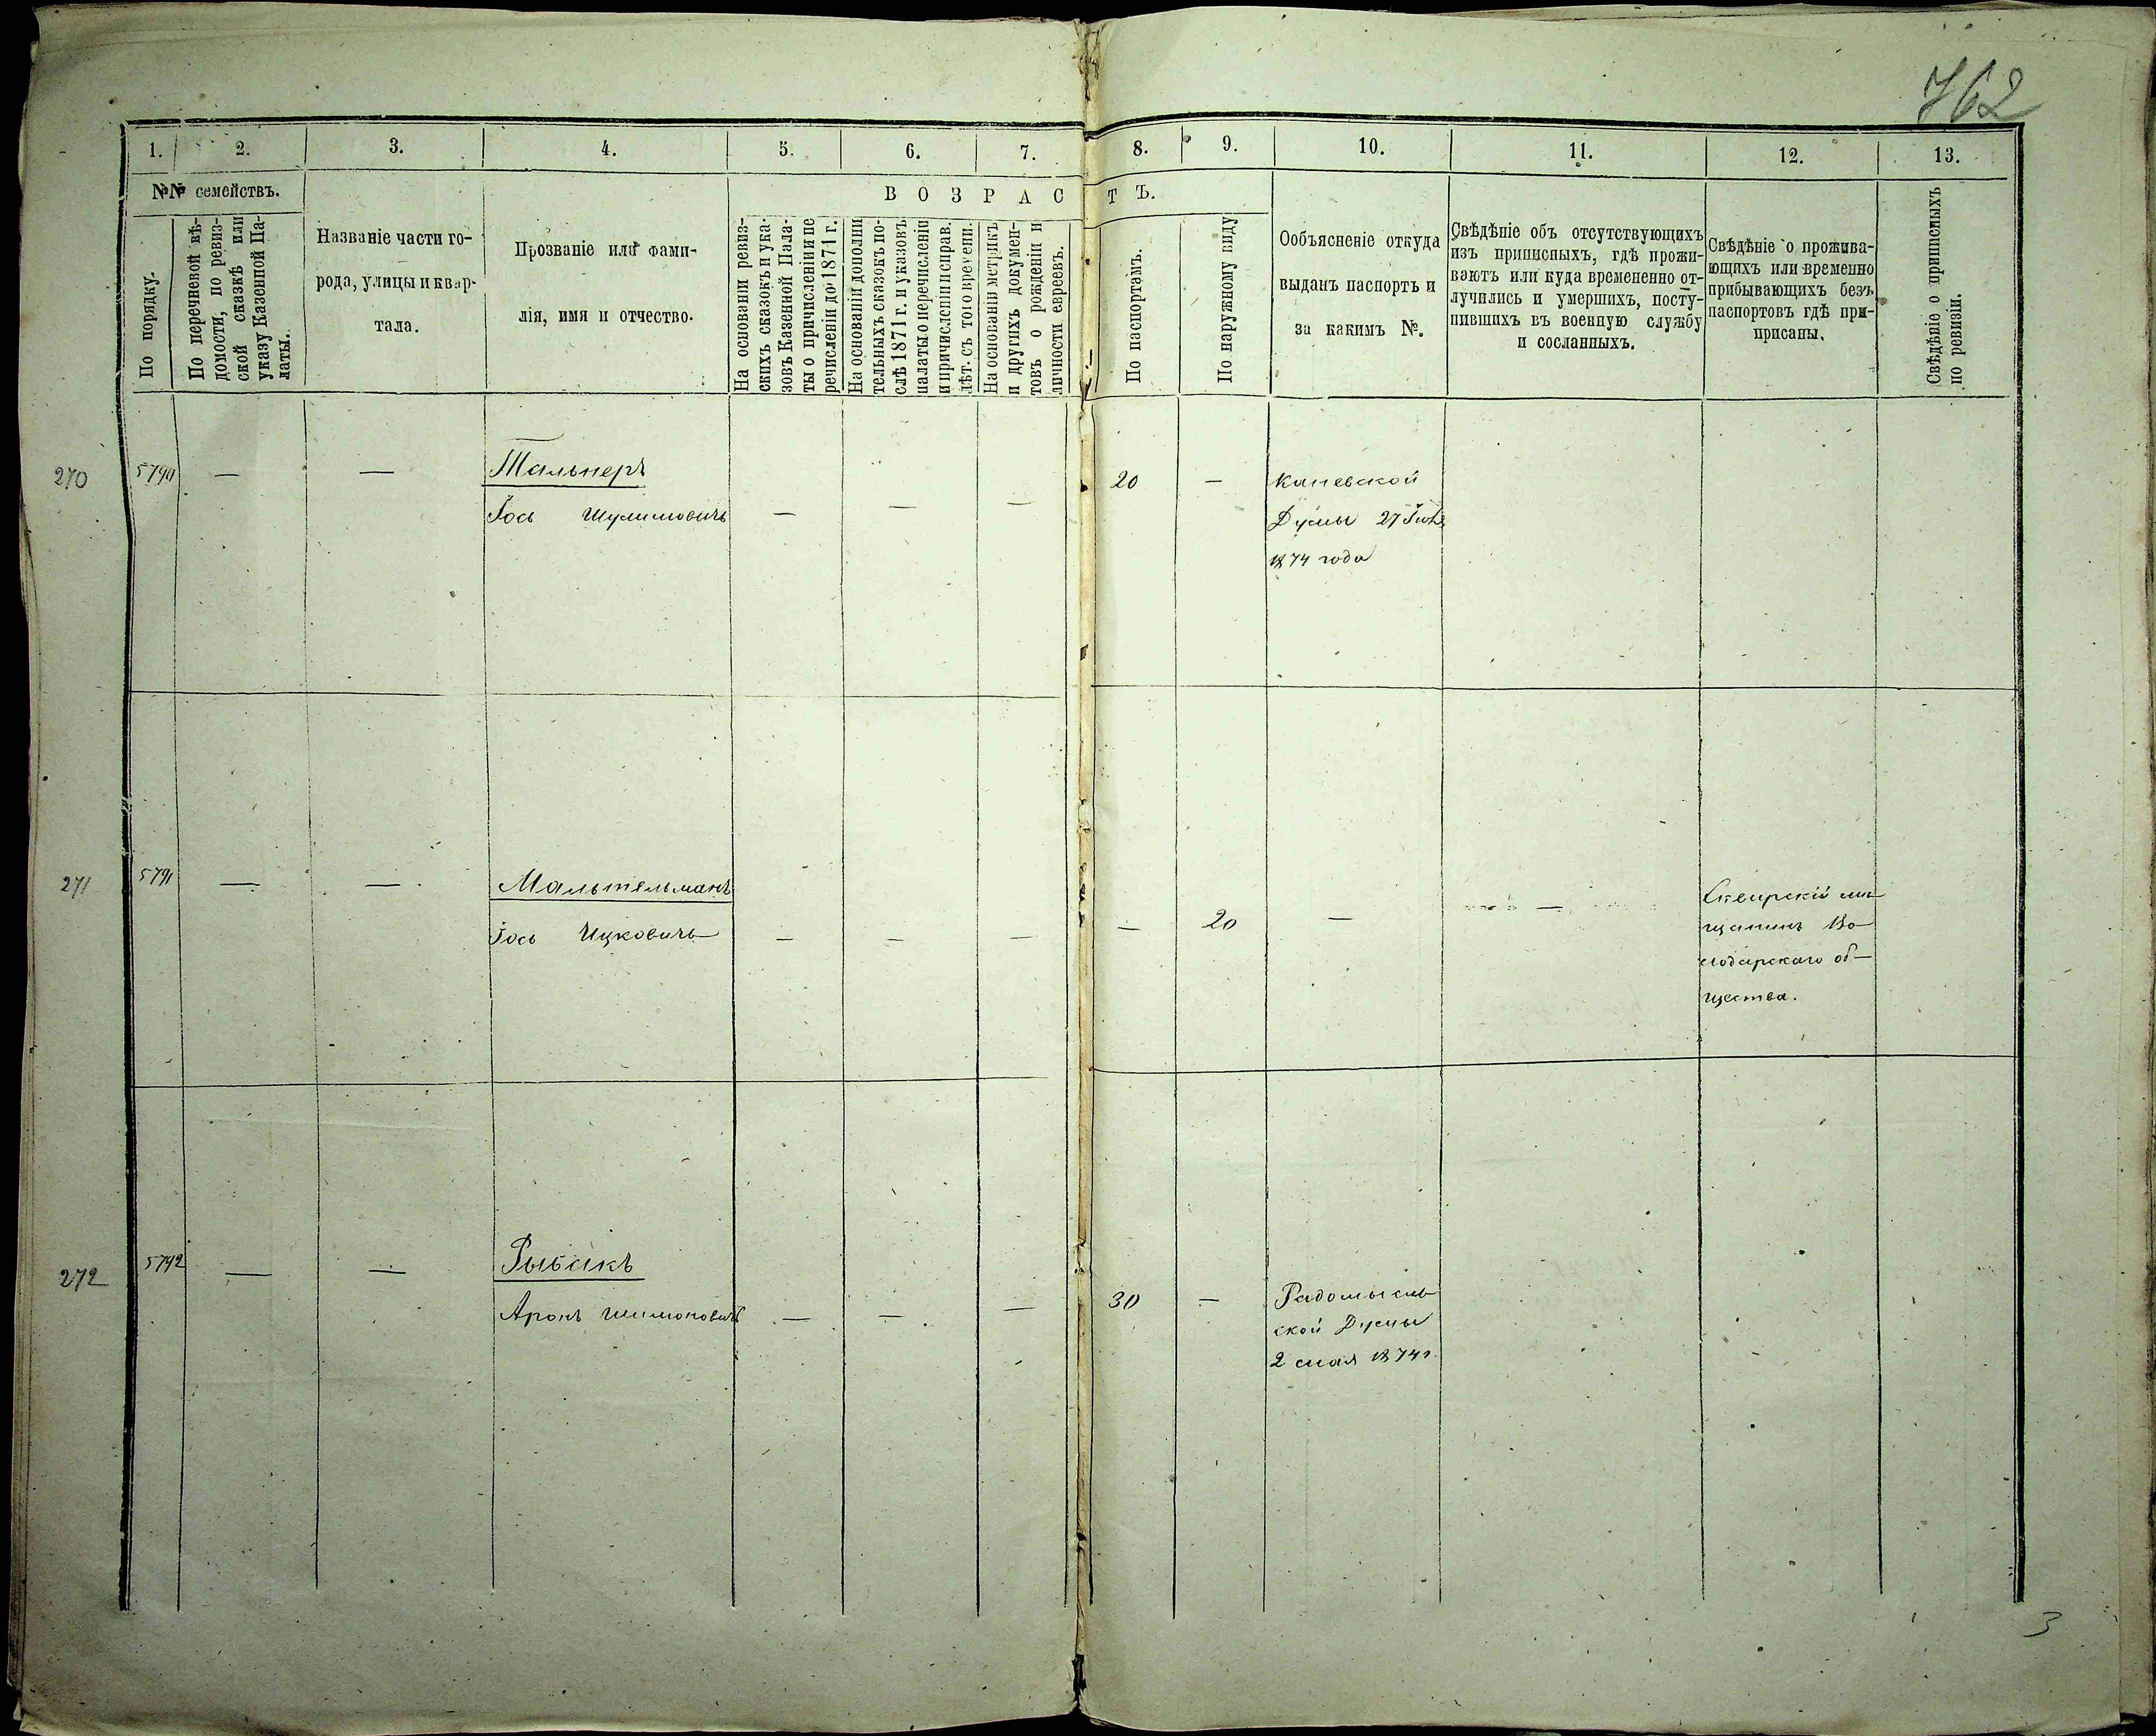 762
1. 2. 3. 4. 5. 6. 7. 8. 9. 10. 11. 12. 13.
№№ семействъ.
В О З Р А С Т Ъ.
По порядку.
По перечневой вѣ-
домости, по ревиз-
ской сказкѣ или
указу Казенной Па-
латы.
Названіе части го-
рода, улицы и квар-
тала.
Прозваніе или фами-
лія, имя и отчество.
На основаніи ревиз-
скихъ сказокъ и ука-
зовъ Казенной Пала-
ты о причисленіи и пе
речисленіи до 1871 г.
На основаніи дополни
тельныхъ сказокъ по-
слѣ 1871 г. и указовъ
палаты о перечисленіи
и причисленіи и справ.
лѣт. съ того времени.
На основаніи метрикъ
и другихъ докумен-
товъ о рожденіи и
личности евреевъ.
По паспортамъ.
По наружному виду
Ообъясненіе откуда
выданъ паспортъ и
за какимъ №.
Свѣдѣніе объ отсутствующихъ
изъ приписныхъ, гдѣ прожи-
ваютъ или куда временно от-
лучились и умершихъ, посту-
пившихъ въ военную службу
и сосланныхъ.
Свѣдѣніе о прожива-
ющихъ или временно
прибывающихъ безъ
паспортовъ гдѣ при-
приписаны.
Свѣдѣніе о приписныхъ
по ревизіи.
270 5790 — — Тальнеръ
Іось Шулимовичъ — — —
20 — Каневской
Думы 27 Іюля
1874 года
271 5791 — — Мальтельманъ
Іось Ицковичъ — — — — 20 — —
Сквирскій мѣ-
щанинъ Во-
лодарскаго об-
щества.
272 5792 — — Рыбакъ
Аронъ Шимоновичъ — — —
30 — Радомысль-
ской Думы
2 мая 1874 г.
3